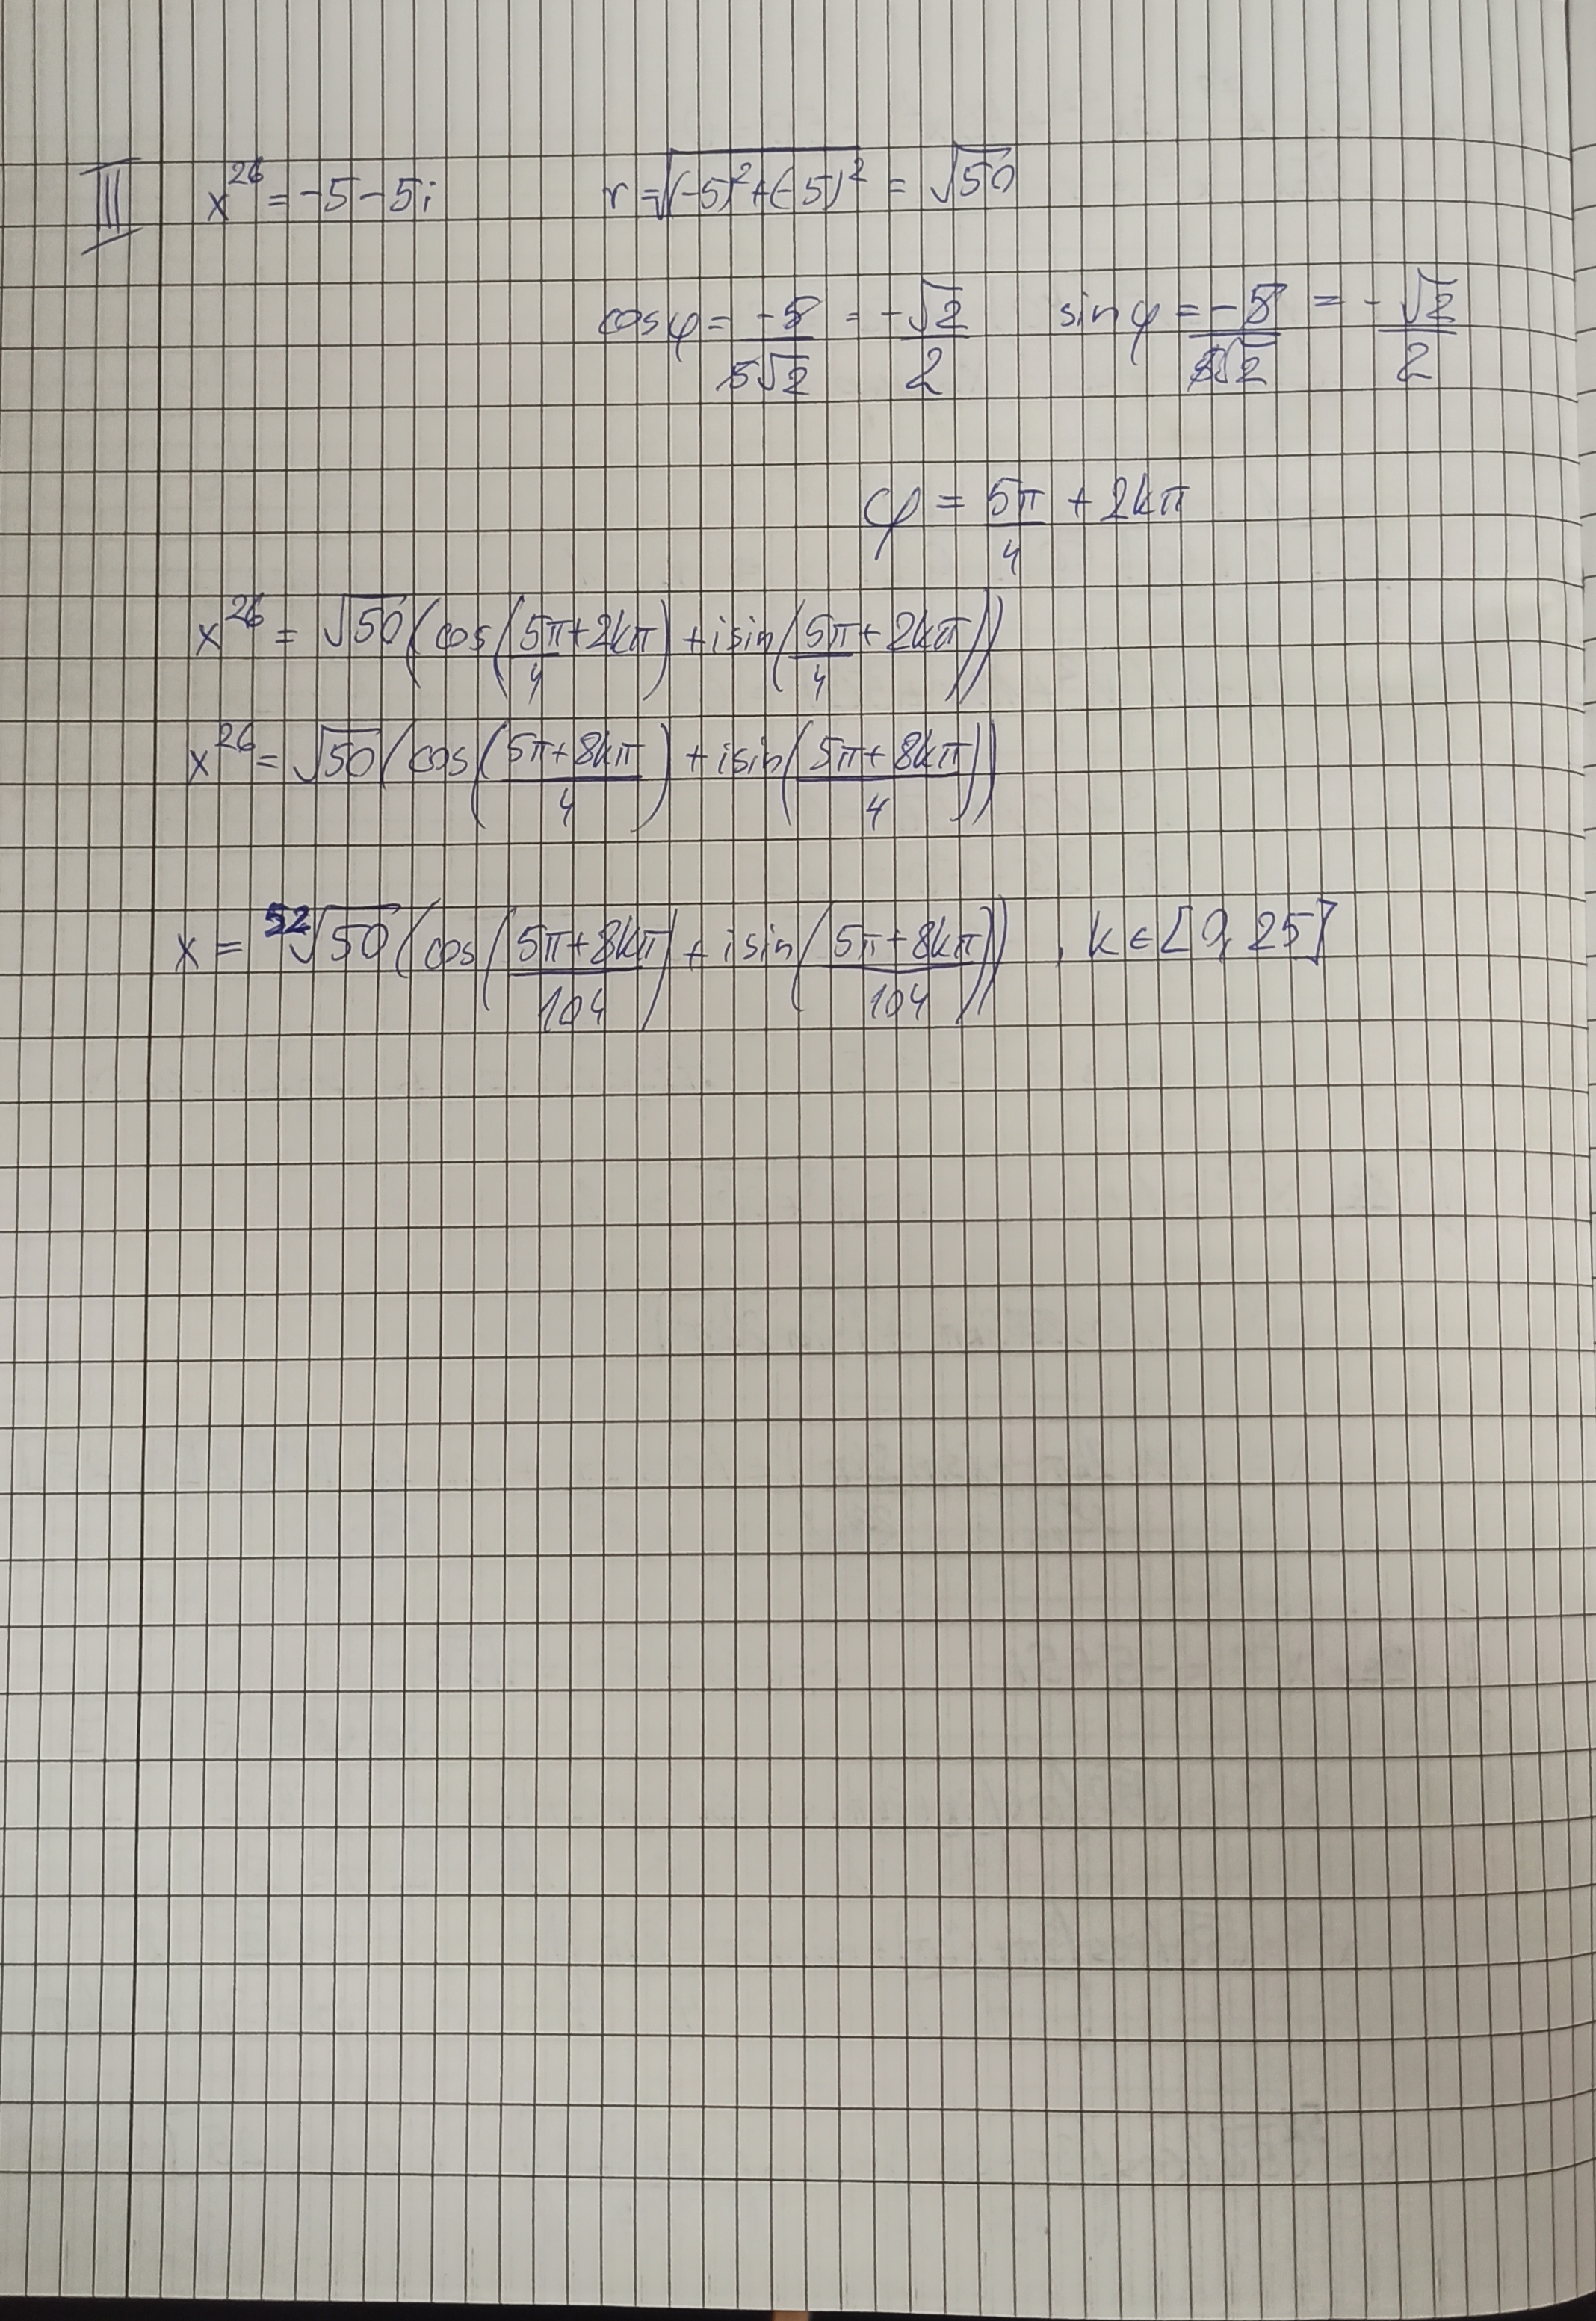 III x^26 = -5-5i r = √((-5)²+(-5)²) = √50
cos φ = -5/5√2 = -√2/2 sin φ = -5/5√2 = -√2/2
φ = 5π/4 + 2kπ
x^26 = √50 (cos(5π/4 + 2kπ) + i sin(5π/4 + 2kπ))
x^26 = √50 (cos((5π+8kπ)/4) + i sin((5π+8kπ)/4))
x = ⁵²√50 (cos((5π+8kπ)/104) + i sin((5π+8kπ)/104)) , k ∈ [0, 25]